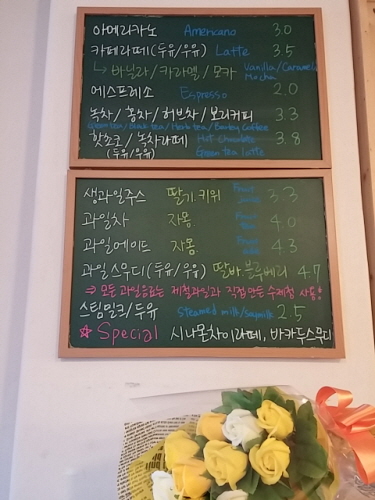 아메리카노 Americano 3.0
카페라떼(두유/우유) Latte 3.5
↳ 바닐라/카라멜/모카 Vanilla/Caramel/Mocha
에스프레소 Espresso 2.0
녹차/홍차/허브차/보리커피 3.3
Green tea/Black tea/Herb tea/Barley Coffee
핫초코/녹차라떼 Hot chocolate 3.8
(두유/우유) Green tea latte
생과일주스 딸기.키위 Fruit Juice 3.3
과일차 자몽 Fruit tea 4.0
과일에이드 자몽 Fruit ade 4.3
과일스무디(두유/우유) 딸바.블루베리 4.7
⇒ 모든 과일음료는 제철과일과 직접만든 수제청 사용!
스팀밀크/두유 Steamed milk/soymilk 2.5
☆ Special 시나몬차이라떼, 바카두스무디